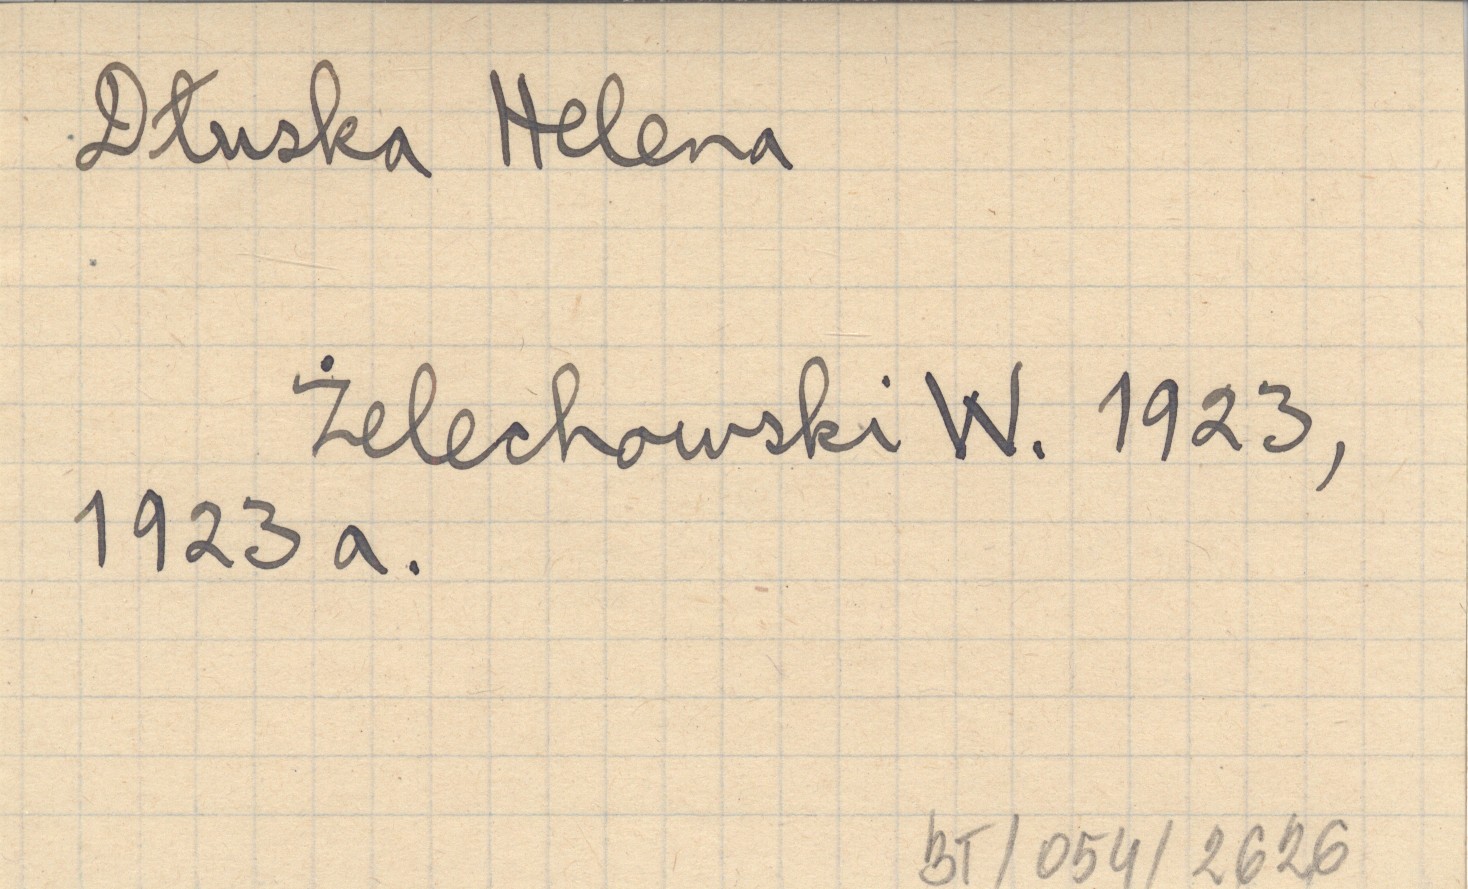 Dłuska Helena
Żelechowski W. 1923,
1923 a.
BT/054/2626